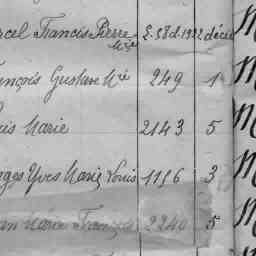 rcel Francis Pierre
Mie
François Gustave Mie 249 1
uis Marie 2143 5
ges Yves Marie Louis 1196 3
an Marie François 2240 5